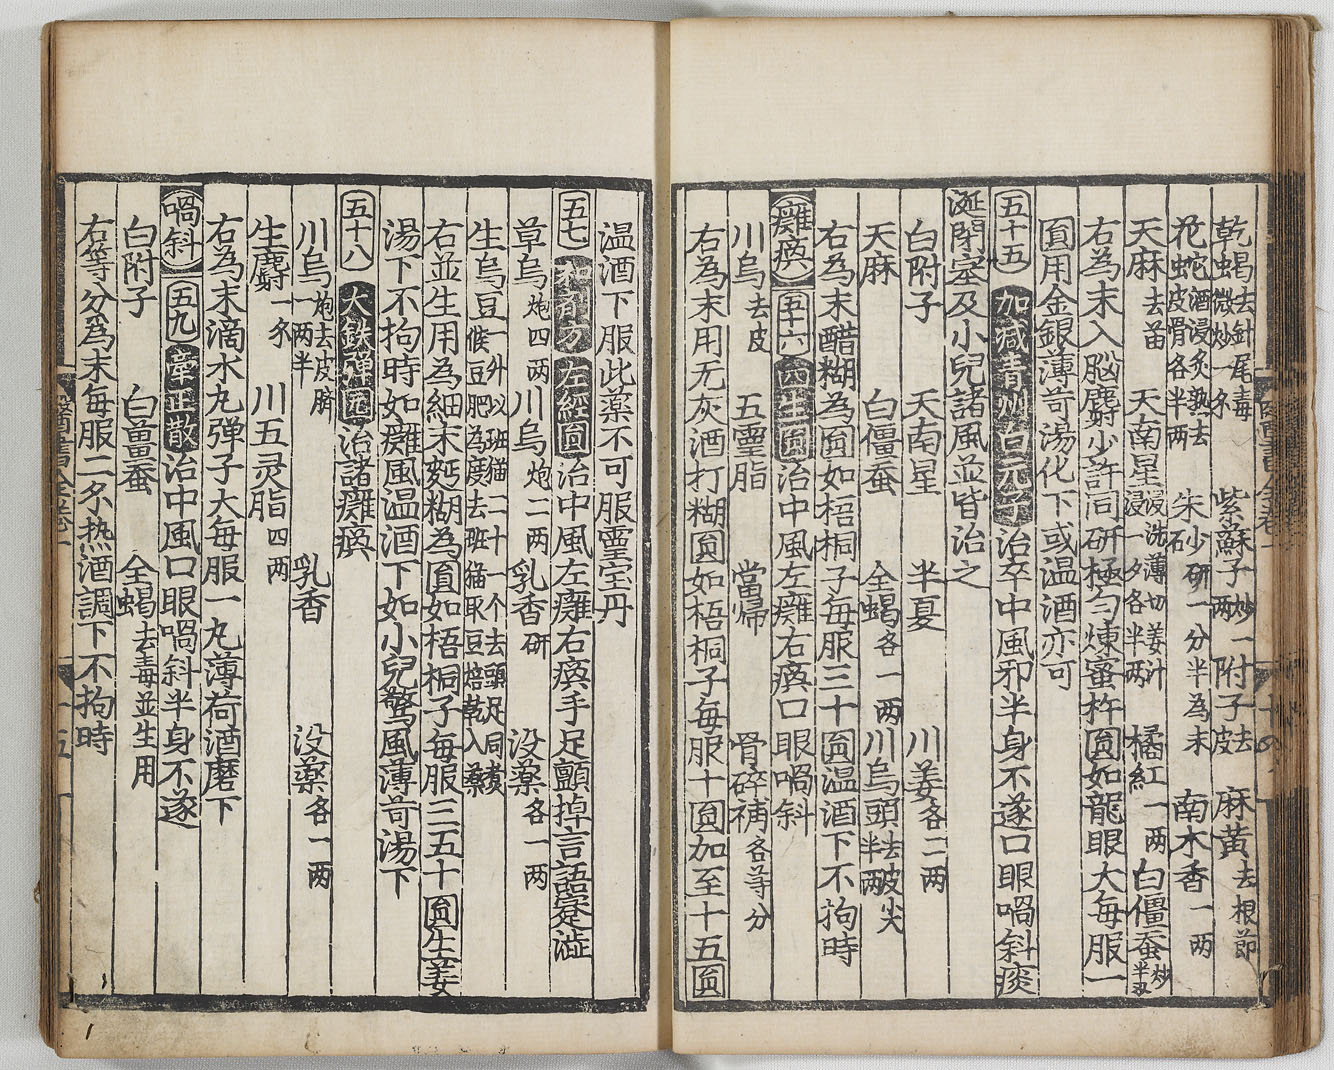 乾蝎去針尾毒微炒一分 紫蘇子炒一两 附子去皮 麻黄去根節
花蛇酒浸炙熟去皮骨各半两 朱砂研一分半為末 南木香一两
天麻去苗 天南星浸洗薄切姜汁浸一夕各半两 橘紅一两 白僵蚕炒半两
右為末入脳麝少許同研極匀煉蜜杵圎如龍眼大每服一
圎用金銀薄苛湯化下或温酒亦可
五十五 加减青州白元子 治卒中風邪半身不遂口眼喎斜痰
涎閉塞及小兒諸風並皆治之
白附子 天南星 半夏 川姜各二两
天麻 白僵蚕 全蝎各一两 川烏頭去皮尖半两
右為末醋糊為圎如梧桐子每服三十圎温酒下不拘時
癱瘓 五十六 四生圎 治中風左癱右瘓口眼喎斜
川烏去皮 五霊脂 當歸 骨碎補各等分
右為末用无灰酒打糊圎如梧桐子每服十圎加至十五圎
温酒下服此薬不可服霊宝丹
五七 和剤方 左經圎 治中風左癱右瘓手足顫掉言語蹇澁
草烏炮四两 川烏炮二两 乳香研 没薬各一两
生烏豆一升以斑猫二十一个去頭足同煮候豆肥為度去斑猫取豆焙乾入薬
右並生用為細末麪糊為圎如梧桐子每服三五十圎生姜
湯下不拘時如癱風温酒下如小兒驚風薄苛湯下
五十八 大鉄弾圎 治諸癱瘓
川烏炮去皮臍一两半 乳香 没薬各一两
生麝一分 川五灵脂四两
右為末滴水丸弾子大每服一丸薄荷酒磨下
喎斜 五九 牽正散 治中風口眼喎斜半身不遂
白附子 白薑蚕 全蝎去毒並生用
右等分為末每服二分热酒調下不拘時